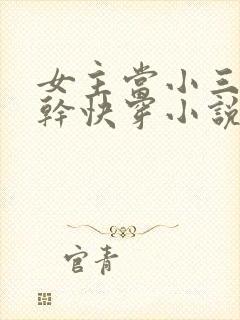 女主當小三
幹快穿小說
官青